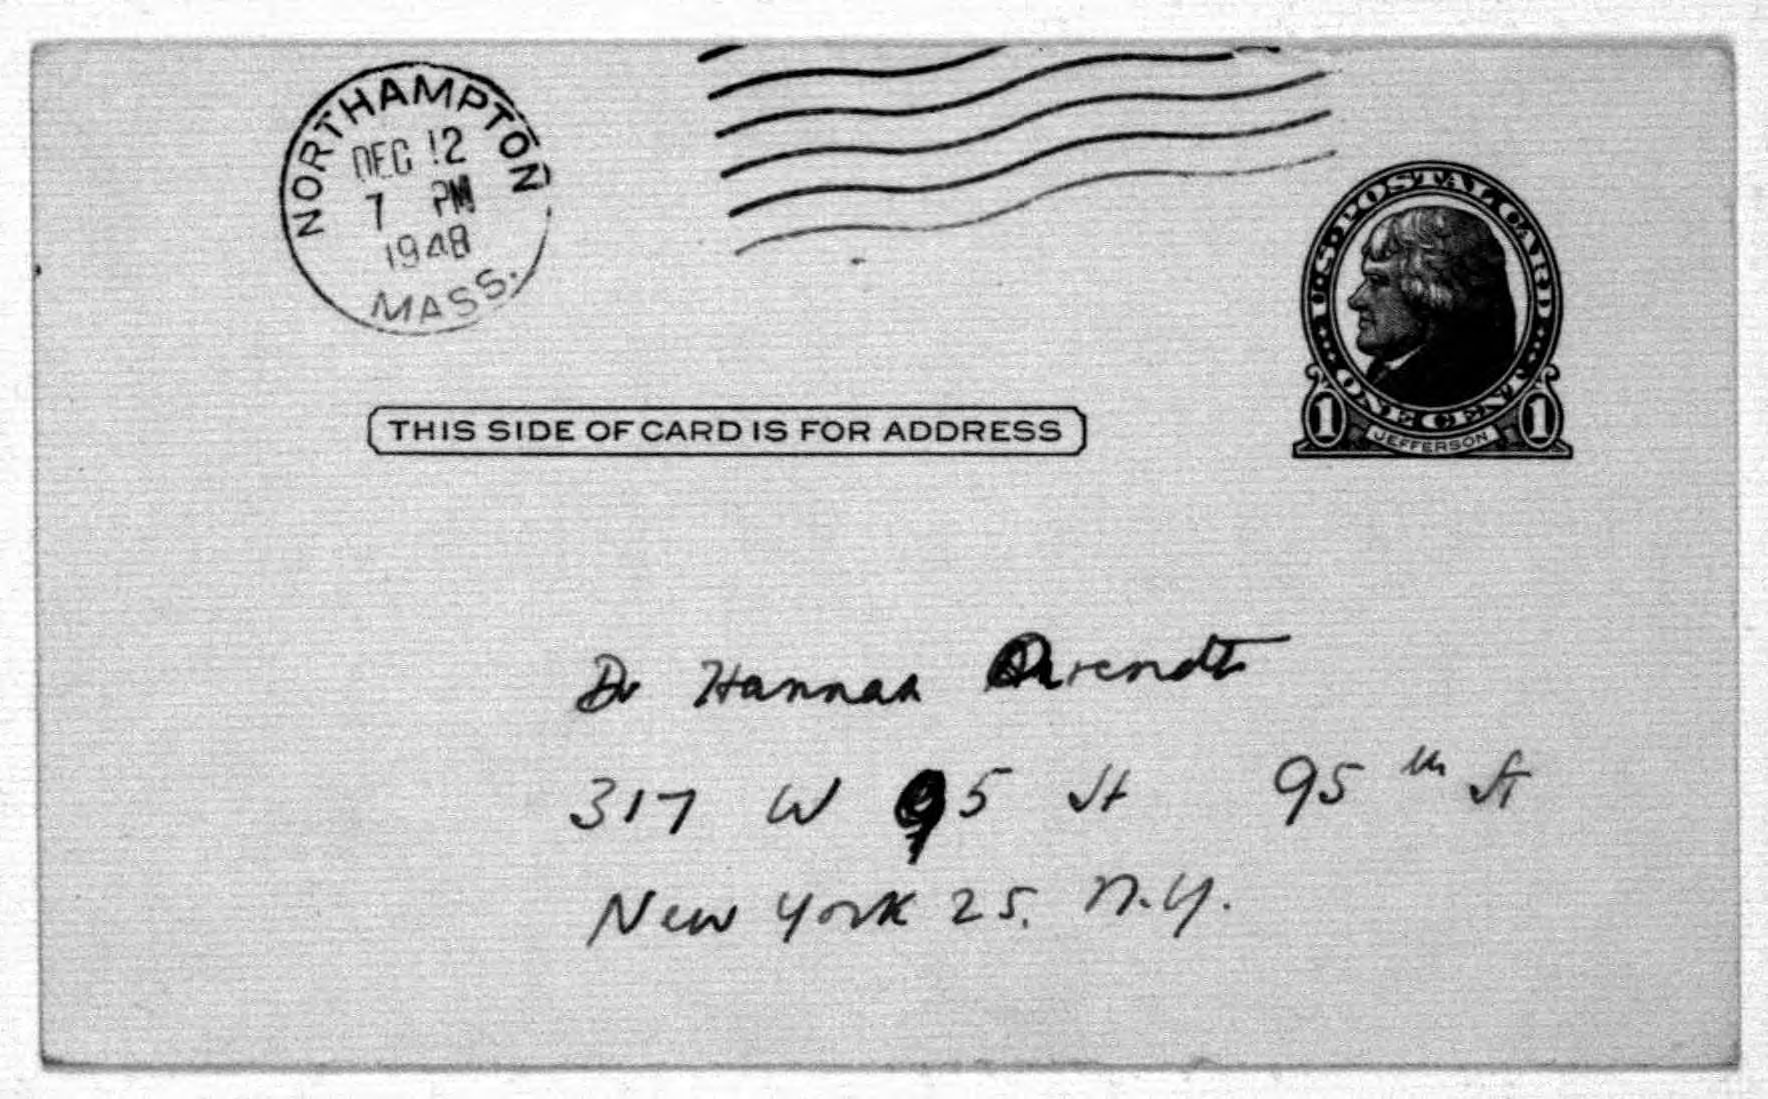 NORTHAMPTON
DEC 12
7 PM
1948
MASS.
U.S. POSTAL CARD
ONE CENT
1 JEFFERSON 1
THIS SIDE OF CARD IS FOR ADDRESS
Dr Hannah Arendt
317 W 95 St 95th St
New York 25. N.Y.